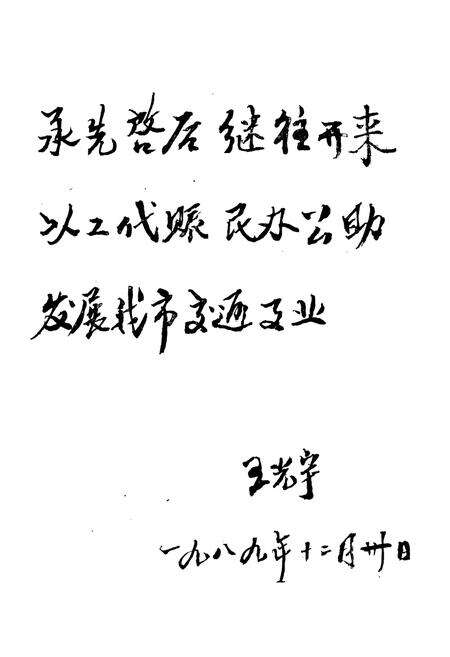 承先启后 继往开来
以工代赈 民办公助
发展我市交通事业
王光宇
一九八九年十二月卅日